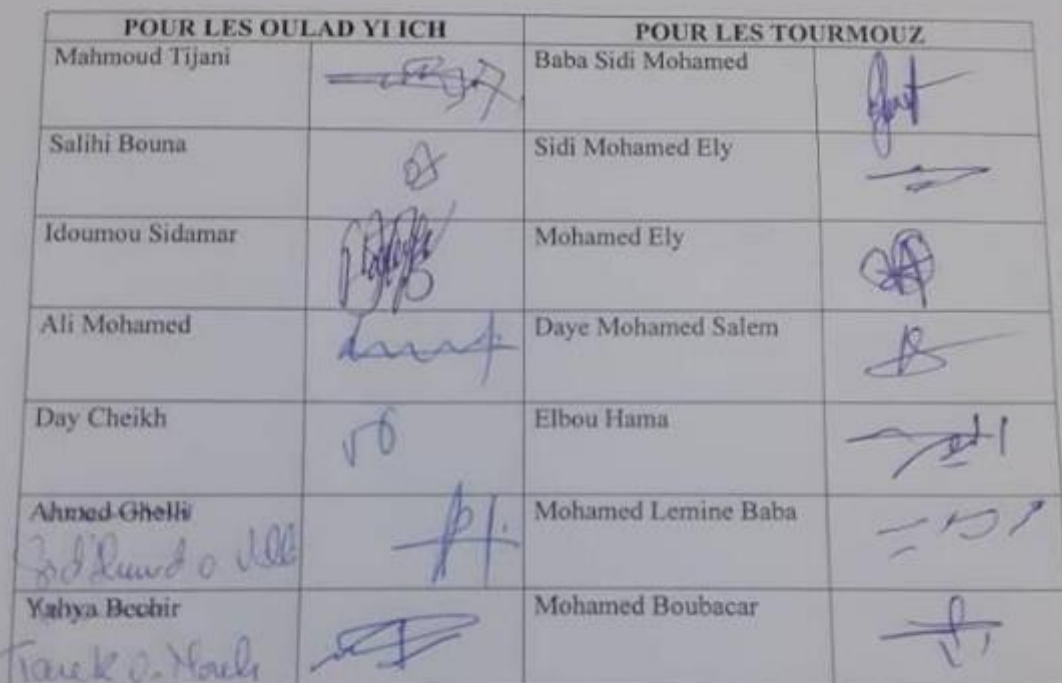 POUR LES OULAD YI ICH
POUR LES TOURMOUZ
Mahmoud Tijani
Baba Sidi Mohamed
Salihi Bouna
Sidi Mohamed Ely
Idoumou Sidamar
Mohamed Ely
Ali Mohamed
Daye Mohamed Salem
Day Cheikh
Elbou Hama
Ahmed Ghelli
Mohamed Lemine Baba
Yahya Bechir
Mohamed Boubacar